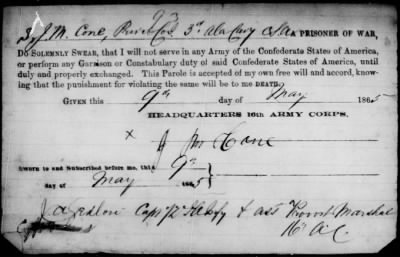 I, J. M. Cone, Private Co F 3d Ala Cavy CSA A PRISONER OF WAR,
DO SOLEMNLY SWEAR, that I will not serve in any Army of the Confederate States of America,
or perform any Garrison or Constabulary duty of said Confederate States of America, until
duly and properly exchanged. This Parole is accepted of my own free will and accord, know-
ing that the punishment for violating the same will be to me DEATH.
GIVEN this 9th day of May 1865
HEADQUARTERS 16th ARMY CORPS.
x J M Cone
SWORN to and Subscribed before me, this 9th
day of May 1865
Capt & asst Provost Marshal
16" A.C.